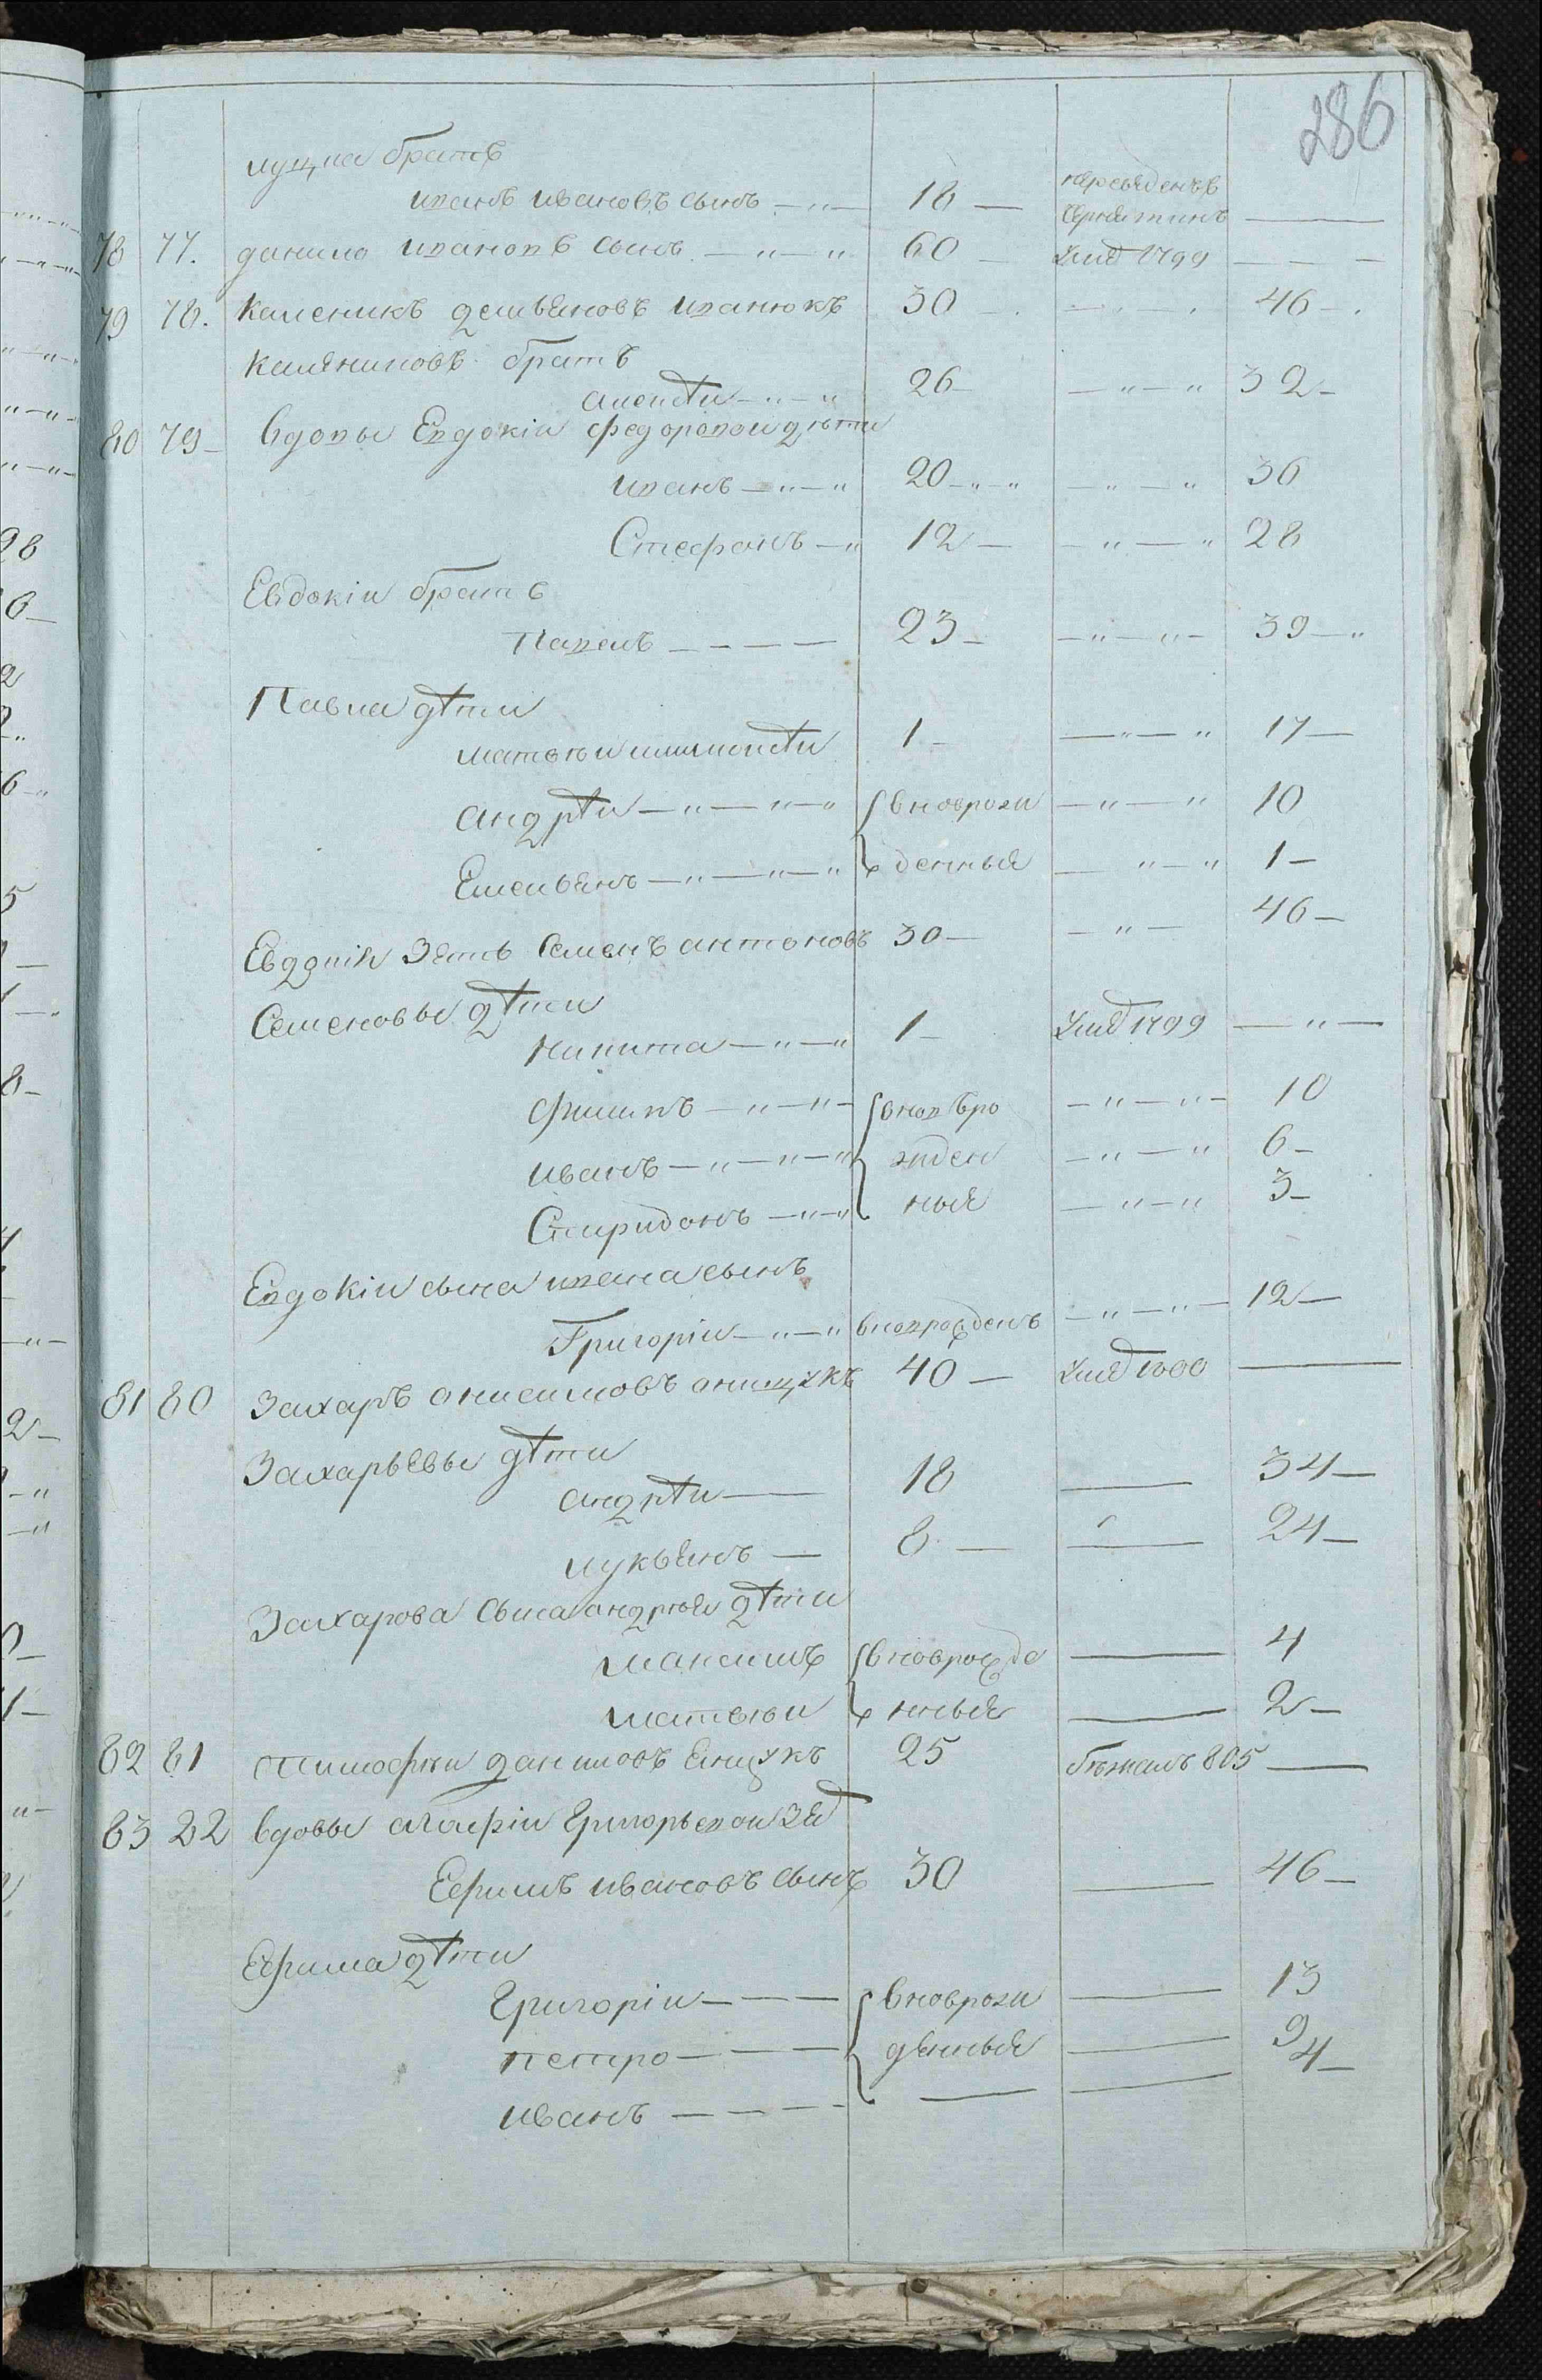 286
луцка братъ
иванъ ивановъ сынъ — 18 — переведенъ въ
Чернятинъ —
78 77. данило ивановъ сынъ — 60 — Умѣ 1799 —
79 78. Каленикъ демьяновъ иванюкъ 30 — — 46 —
Калениковъ братъ
алексѣи — 26 — — 32 —
80 79 — вдовы Евдокіи федоровои дѣти
иванъ — 20 — — 36
Стефанъ — 12 — — 28
Евдокіи братъ
Павелъ — 23 — — 39 —
Павла дѣти
матвѣи 1 — — 17 —
андрѣи — вноврож — 10
Емельянъ — денныя — 1 —
Евдокіи Зять Семенъ антоновъ 30 — — 46 —
Семеновы дѣти
никита — 1 — Умѣ 1799 —
филипъ — вновъро — 10
иванъ — жден — 6 —
Спиридонъ — ныя — 3 —
Евдокіи сына ивана сынъ
Григоріи — вноврожденъ — 12 —
81 80 Захаръ анисимовъ анищукъ 40 — Умѣ 1800 —
Захарьевы дѣти
андрѣи — 18 — 34 —
лукьянъ — 8 — — 24 —
Захарова сына андрѣя дѣти
максимъ вноврожде — 4
матвѣи нныя — 2 —
82 81 тимофѣи даниловъ Янцукъ 25 бѣжалъ 805 —
83 82 вдовы агафіи Григорьевои зя
Ефимъ ивановъ сынъ 30 — 46 —
Ефима дѣти
Григоріи — вноврож — 13
петро — денныя — 9
иванъ — — — 4 —